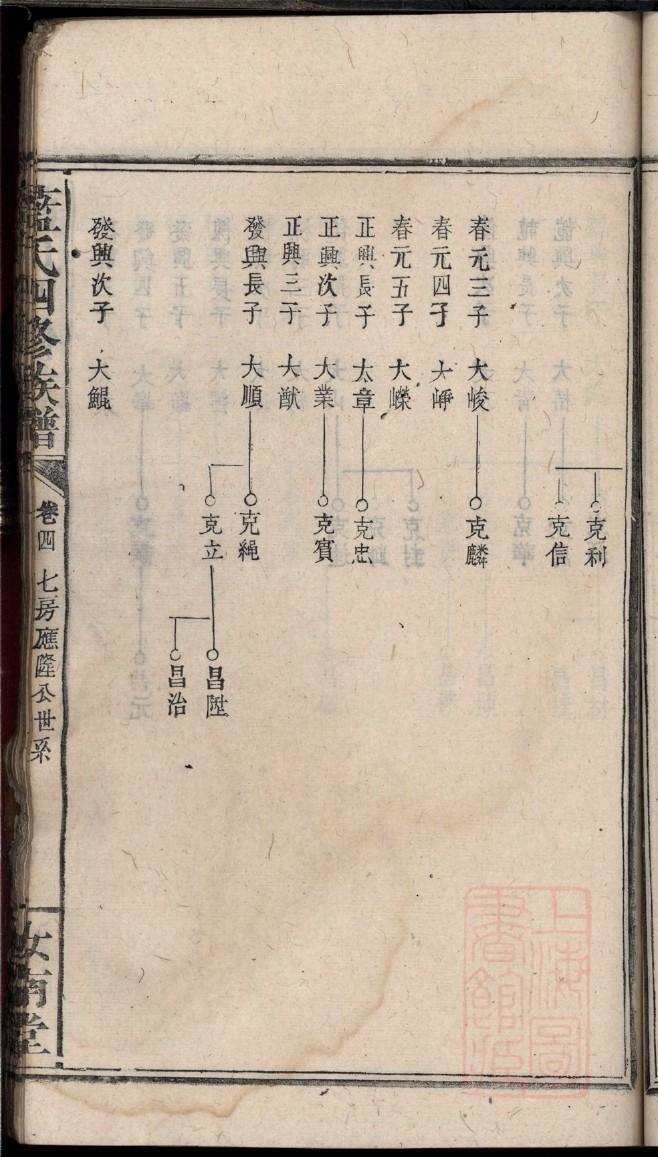 克利
克信
春元三子 大峻
克麟
春元四子 大崢
春元五子 大嶸
正興長子 大章
克忠
正興次子 大業
克賓
正興三子 大猷
發興長子 大順
克繩
克立
昌陞
昌治
發興次子 大鯤
藍氏四修族譜
卷四 七房應隆公世系
汝南堂
上海圖
書館藏